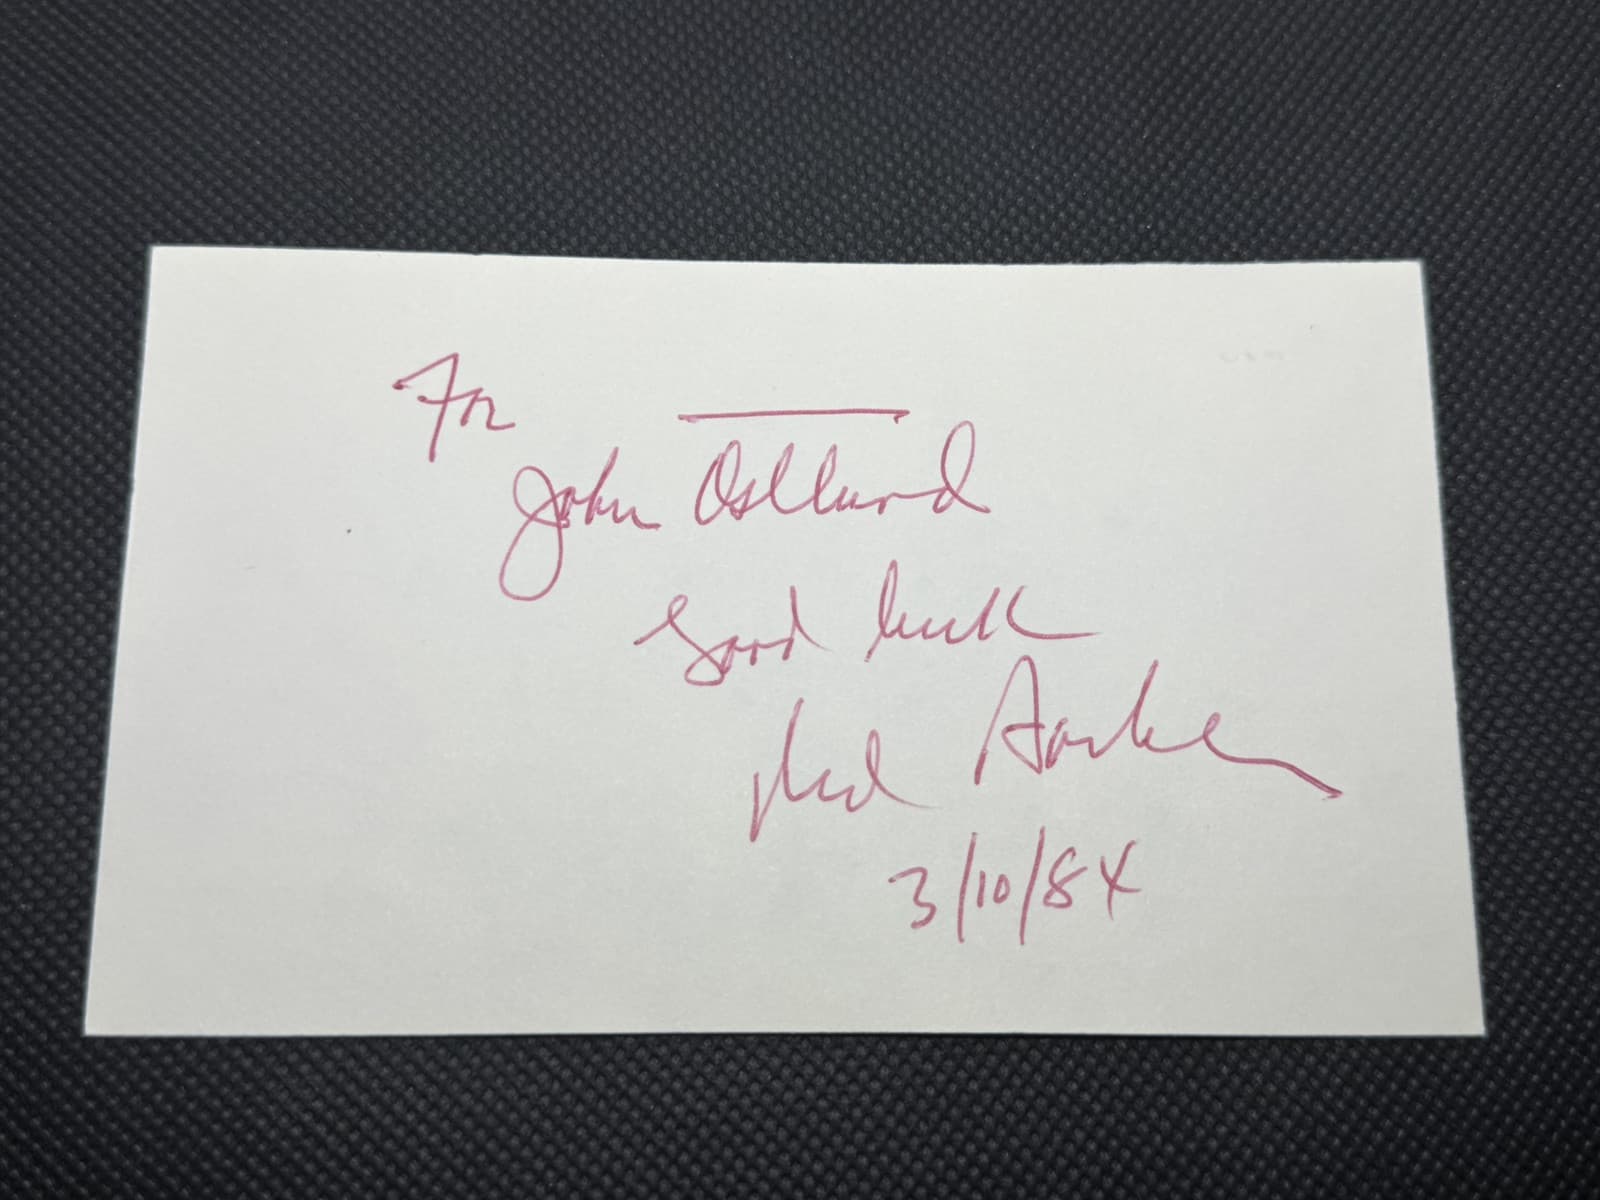 For
John Ostlund
Good luck
3/10/84